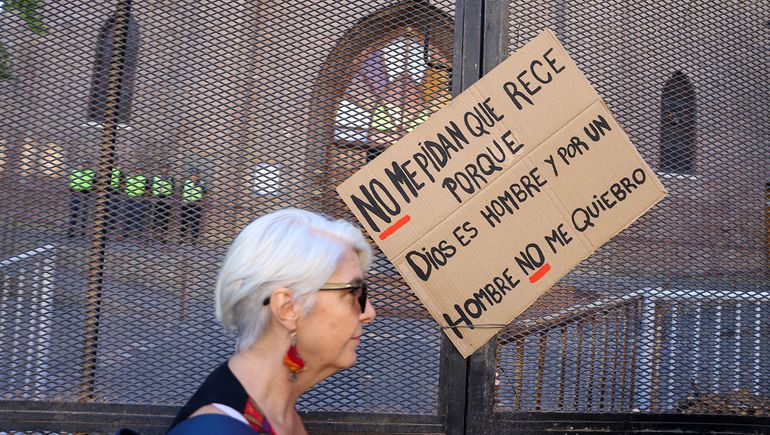 NO ME PIDAN QUE RECE
PORQUE
DIOS ES HOMBRE Y POR UN
HOMBRE NO ME QUIEBRO